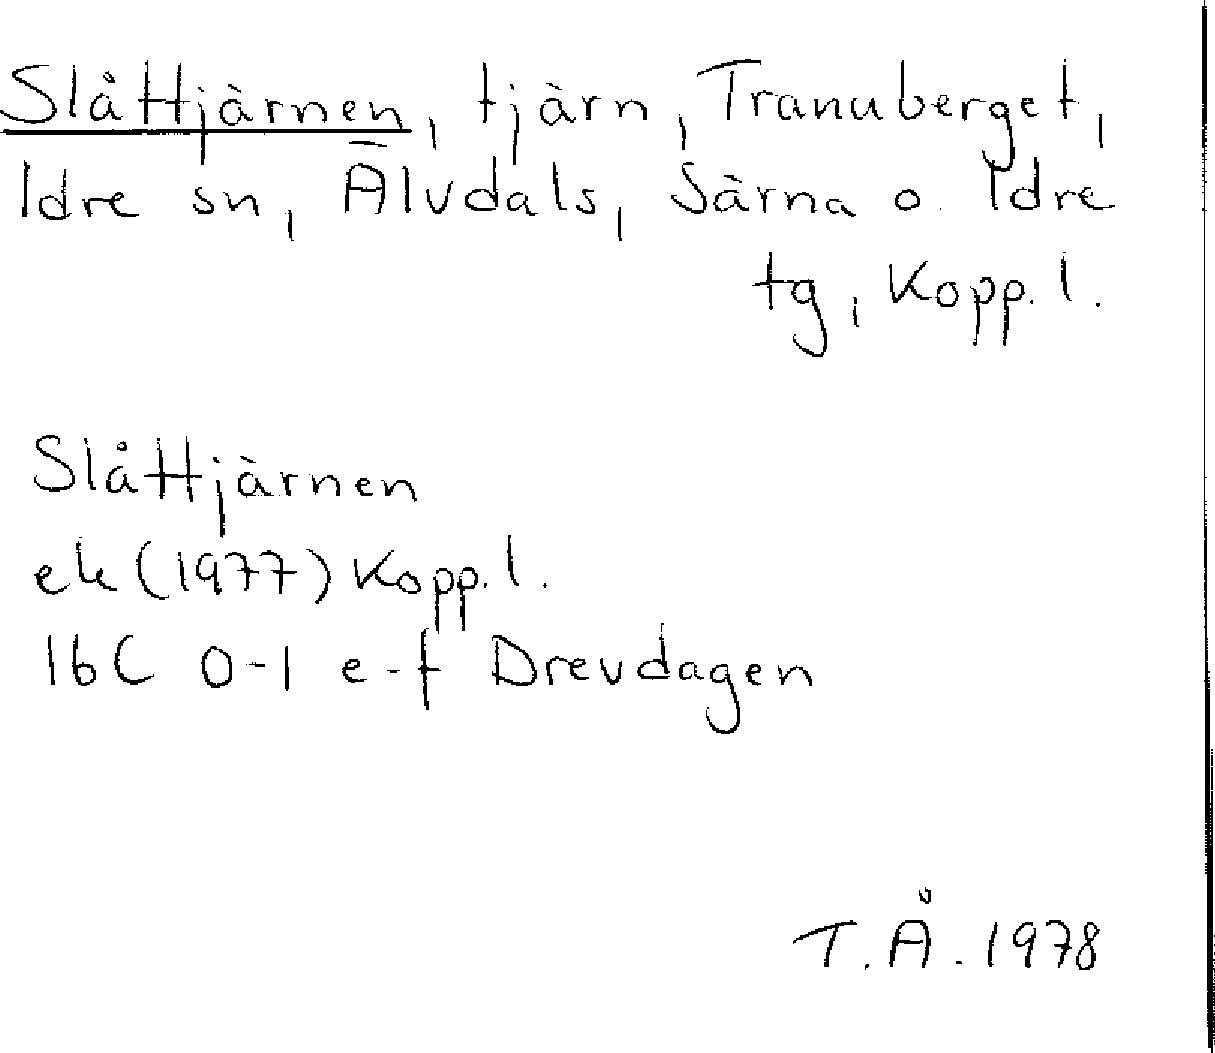 Slåttjärnen, tjärn, Tranuberget,
Idre sn, Älvdals, Särna o. Idre
tg, Kopp. l.
Slåttjärnen
ek (1977) Kopp. l.
16C 0-1 e-f Drevdagen
T. Å. 1978